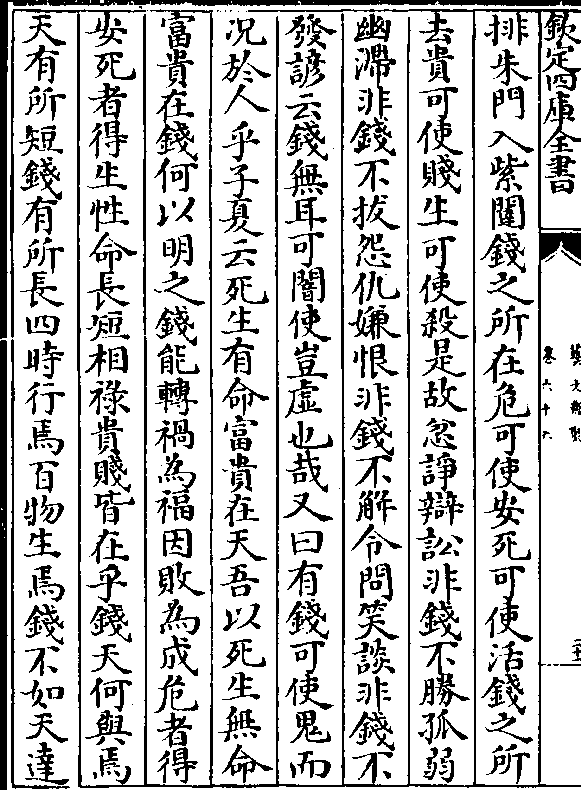 欽定四庫全書
藝文類聚
卷六十六
排朱門入紫闥錢之所在危可使安死可使活錢之所
去貴可使賤生可使殺是故忿諍辯訟非錢不勝孤弱
幽滯非錢不拔怨仇嫌恨非錢不解令問笑談非錢不
發諺云錢無耳可闇使豈虛也哉又曰有錢可使鬼而
況於人乎子夏云死生有命富貴在天吾以死生無命
富貴在錢何以明之錢能轉禍為福因敗為成危者得
安死者得生性命長短相祿貴賤皆在乎錢天何與焉
天有所短錢有所長四時行焉百物生焉錢不如天達